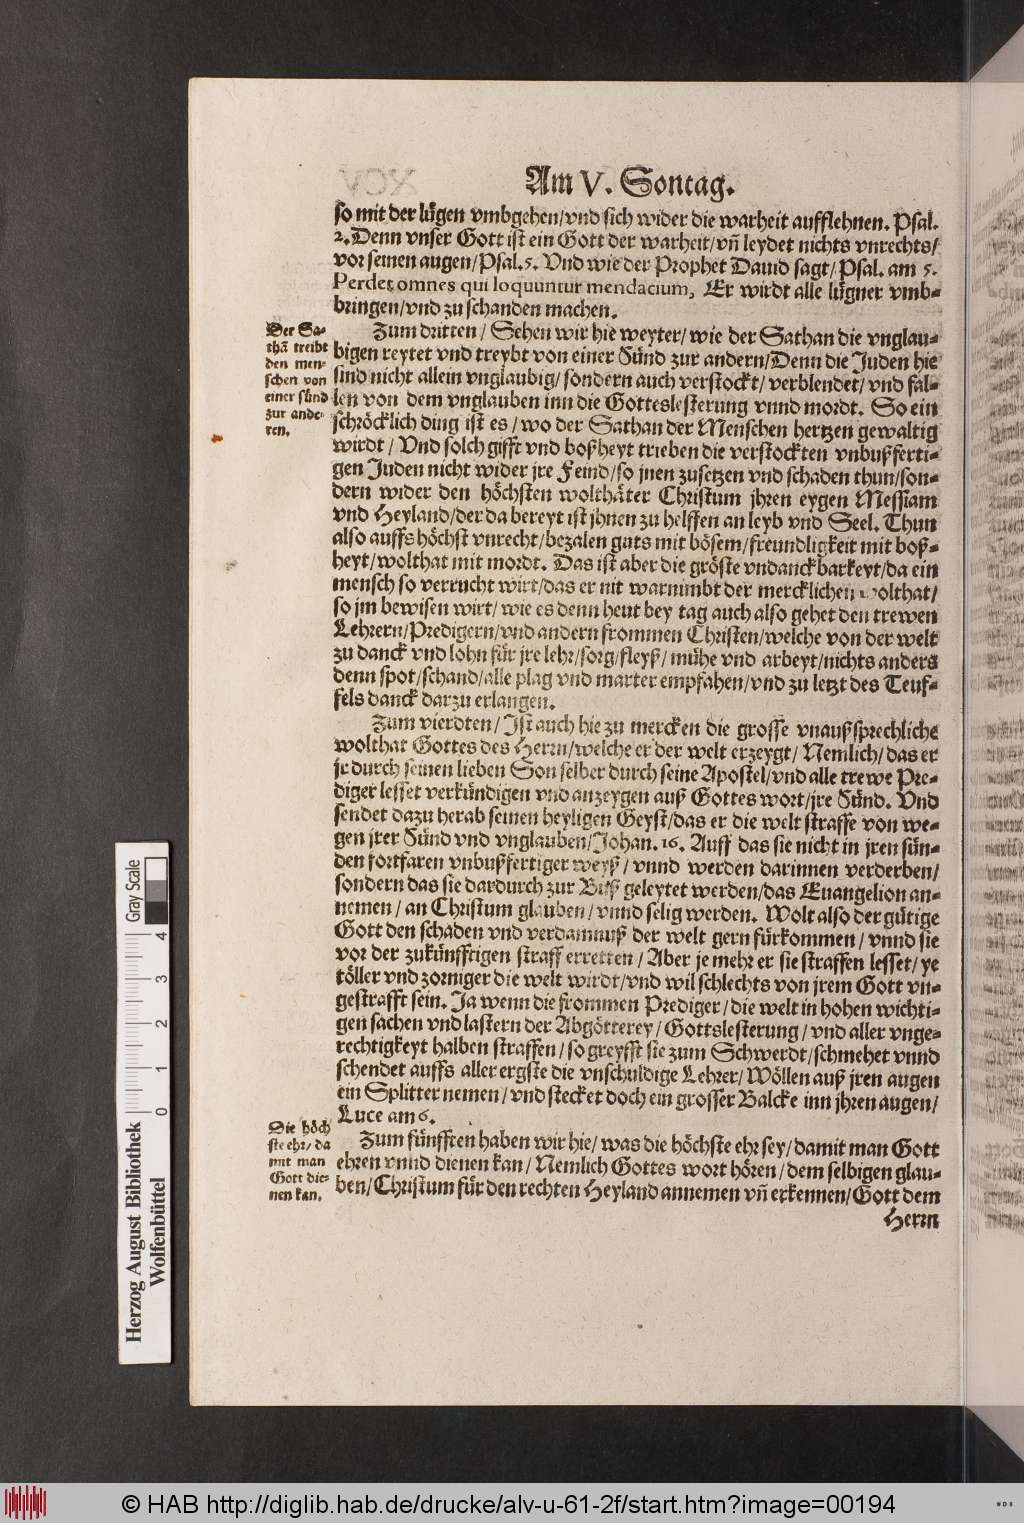 Am V. Sontag.
so mit der lügen vmbgehen/vnd sich wider die warheit aufflehnen. Psal.
2. Denn vnser Gott ist ein Gott der warheit/vñ leydet nichts vnrechts/
vor seinen augen/Psal. 5. Vnd wie der Prophet Dauid sagt/Psal. am 5.
Perdes omnes qui loquuntur mendacium, Er wirdt alle lügner vmb-
bringen/vnd zu schanden machen.
Der Sa-
thã treibt
den men-
schen von
einer sünd
zur ande-
ren.
Zum dritten/ Sehen wir hie weyter/ wie der Sathan die vnglau-
bigen reytet vnd treybt von einer Sünd zur andern/Denn die Juden hie
sind nicht allein vnglaubig/ sondern auch verstockt/ verblendet/ vnd fal-
len von dem vnglauben inn die Gotteslesterung vnnd mordt. So ein
schröcklich ding ist es/ wo der Sathan der Menschen hertzen gewaltig
wirdt/ Vnd solch gifft vnd boßheyt trieben die verstockten vnbußferti-
gen Juden nicht wider jre Feind/so jnen zusetzen vnd schaden thun/son-
dern wider den höchsten wolthäter Christum jhren eygen Messiam
vnd Heyland/der da bereyt ist jhnen zu helffen an leyb vnd Seel. Thun
also auffs höchst vnrecht/bezalen guts mit bösem/freundligkeit mit boß-
heyt/wolthat mit mordt. Das ist aber die gröste vndanckbarkeyt/da ein
mensch so verrucht wirt/das er nit warnimbt der mercklichen wolthat/
so jm bewisen wirt/ wie es denn heut bey tag auch also gehet den trewen
Lehrern/Predigern/vnd andern frommen Christen/welche von der welt
zu danck vnd lohn für jre lehr/sorg/fleyß/ mühe vnd arbeyt/nichts anders
denn spot/schand/alle plag vnd marter empfahen/vnd zu letzt des Teuf-
fels danck darzu erlangen.
Zum vierdten/ Ist auch hie zu mercken die grosse vnaußsprechliche
wolthat Gottes des Herrn/welche er der welt erzeygt/ Nemlich/das er
jr durch seinen lieben Son selber durch seine Apostel/vnd alle trewe Pre-
diger lesset verkündigen vnd anzeygen auß Gottes wort/jre Sünd. Vnd
sendet dazu herab seinen heyligen Geyst/das er die welt straffe von we-
gen jrer Sünd vnd vnglauben/Johan. 16. Auff das sie nicht in jren sün-
den fortfaren vnbußfertiger weyß/ vnnd werden darinnen verderben/
sondern das sie dardurch zur Buß geleytet werden/das Euangelion an-
nemen/ an Christum glauben/ vnnd selig werden. Wolt also der gütige
Gott den schaden vnd verdamnuß der welt gern fürkommen/ vnnd sie
vor der zukünfftigen straff erretten/ Aber je mehr er sie straffen lesset/ ye
töller vnd zorniger die welt wirdt/vnd wil schlechts von jrem Gott vn-
gestrafft sein. Ja wenn die frommen Prediger/ die welt in hohen wichti-
gen sachen vnd lastern der Abgötterey/ Gottslesterung/ vnd aller vnge-
rechtigkeyt halben straffen/ so greyfft sie zum Schwerdt/schmehet vnnd
schendet auffs aller ergste die vnschuldige Lehrer/ Wöllen auß jren augen
ein Splitter nemen/ vnd stecket doch ein grosser Balcke inn jhren augen/
Luce am 6.
Die höch
ste ehr/ da
mit man
Gott die-
nen kan.
Zum fünfften haben wir hie/ was die höchste ehr sey/ damit man Gott
ehren vnnd dienen kan/ Nemlich Gottes wort hören/ dem selbigen glau-
ben/ Christum für den rechten Heyland annemen vñ erkennen/ Gott dem
Herrn
Gray Scale
4
3
2
1
0
Herzog August Bibliothek
Wolfenbüttel
© HAB http://diglib.hab.de/drucke/alv-u-61-2f/start.htm?image=00194